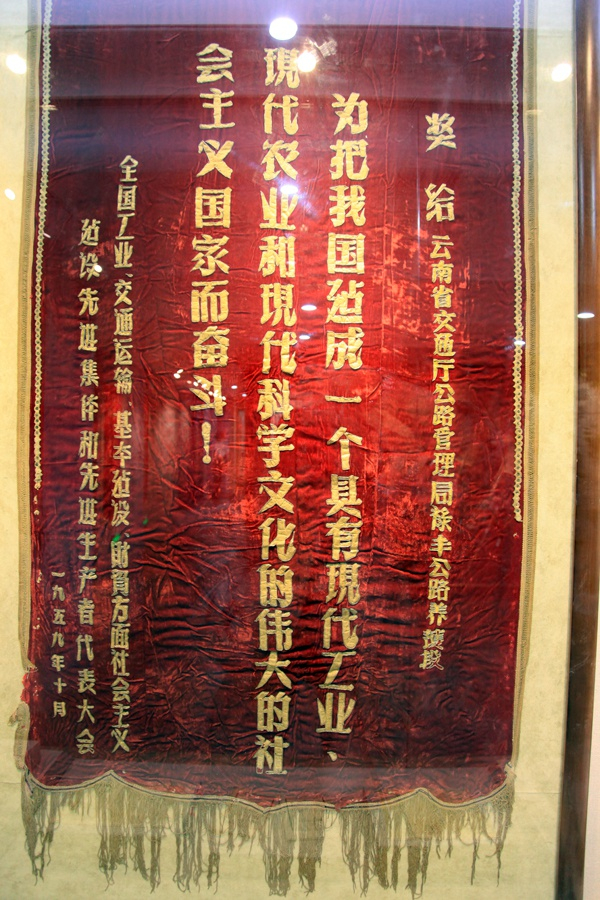 奖给云南省交通厅公路管理局禄丰公路养护段
为把我国建成一个具有現代工业、
現代农业和現代科学文化的伟大的社
会主义国家而奋斗！
全国工业、交通运输、基本建设、財貿方面社会主义
建设先进集体和先进生产者代表大会
一九五九年十月